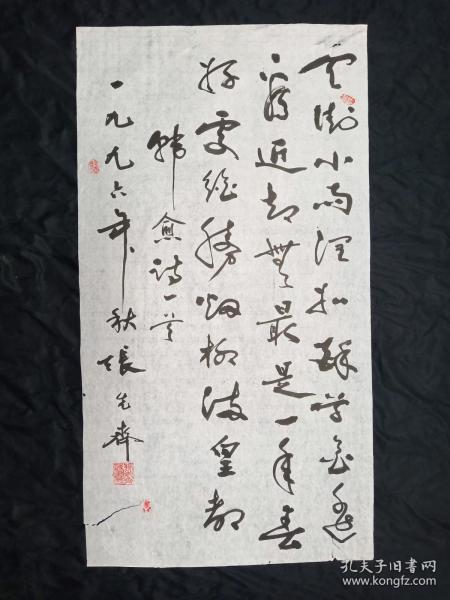 天街小雨润如酥草色遥
看近却無最是一年春
好處絕勝烟柳满皇都
韓愈诗一首
一九九六年秋張
孔夫子旧书网
www.kongfz.com